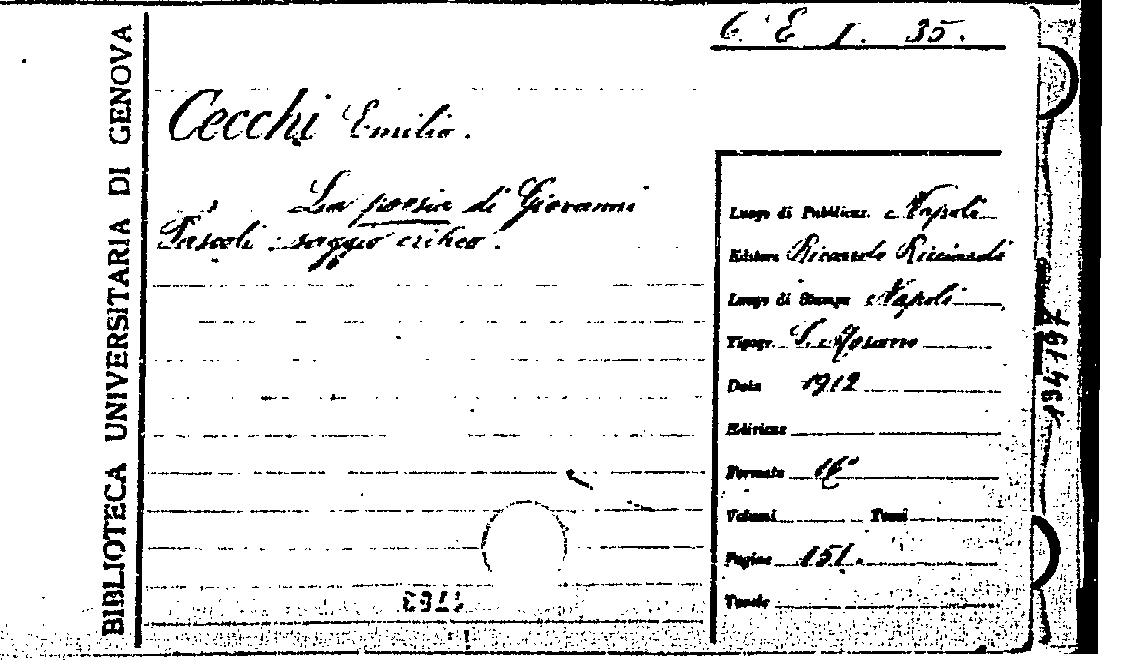 BIBLIOTECA UNIVERSITARIA DI GENOVA
6. E I. 35.
Cecchi Emilio.
La poesia di Giovanni
Pascoli : saggio critico.
Luogo di Pubblicaz. Napoli
Editore Riccardo Ricciardi
Luogo di Stampa Napoli
Tipogr. S. Morano
Data 1912
Edizione
Formato 16º
Volumi Tomi
Pagine 151.
Tavole
194197